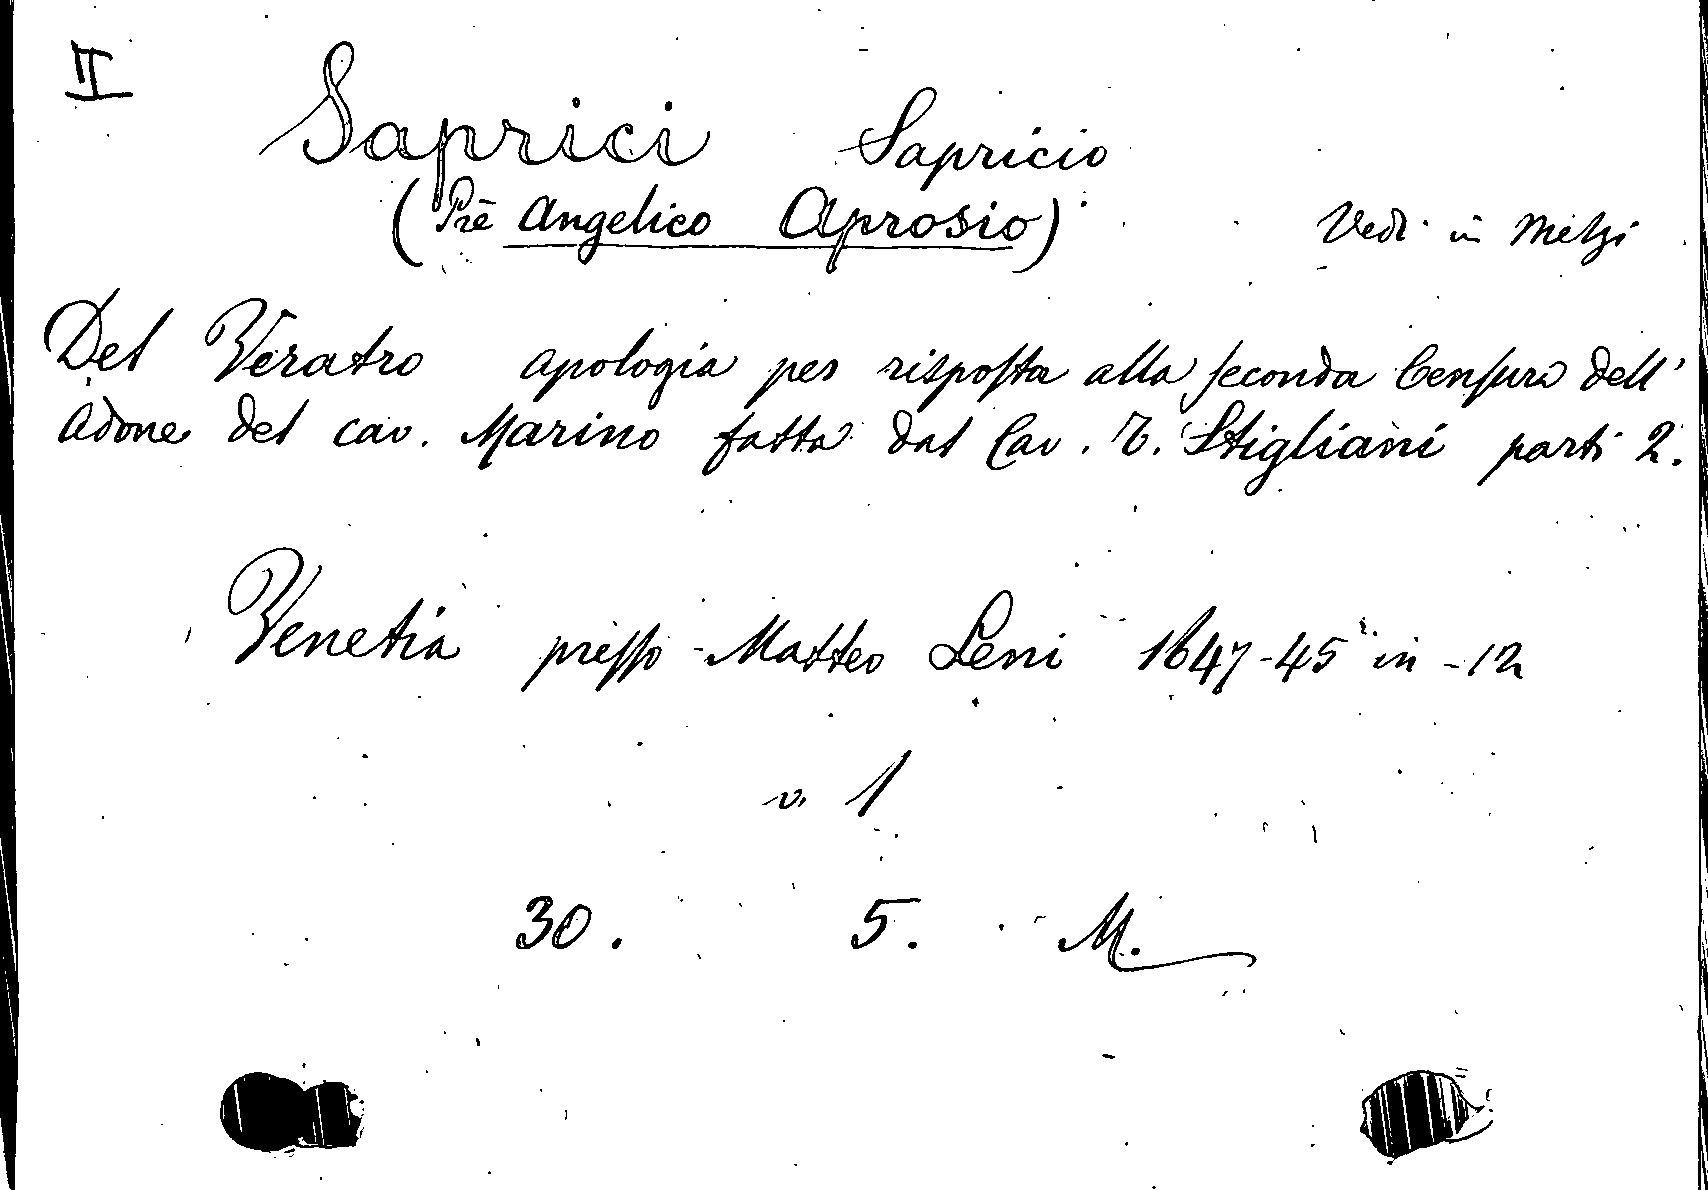 II
Saprici Sapricio
(Prē Angelico Aprosio) Vedi in Melzi
Del Veratro apologia per risposta alla seconda Censura dell'
Adone del cav. Marino fatta dal Cav. T. Stigliani parti 2.
Venetia presso Matteo Leni 1647-45 in-12
v. 1
30. 5. M.